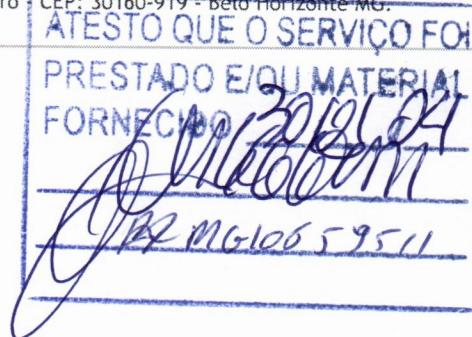 ro - CEP: 30160-919 - Belo Horizonte MG.
ATESTO QUE O SERVIÇO FOI
PRESTADO E/OU MATERIAL
FORNECIDO
MG10659511